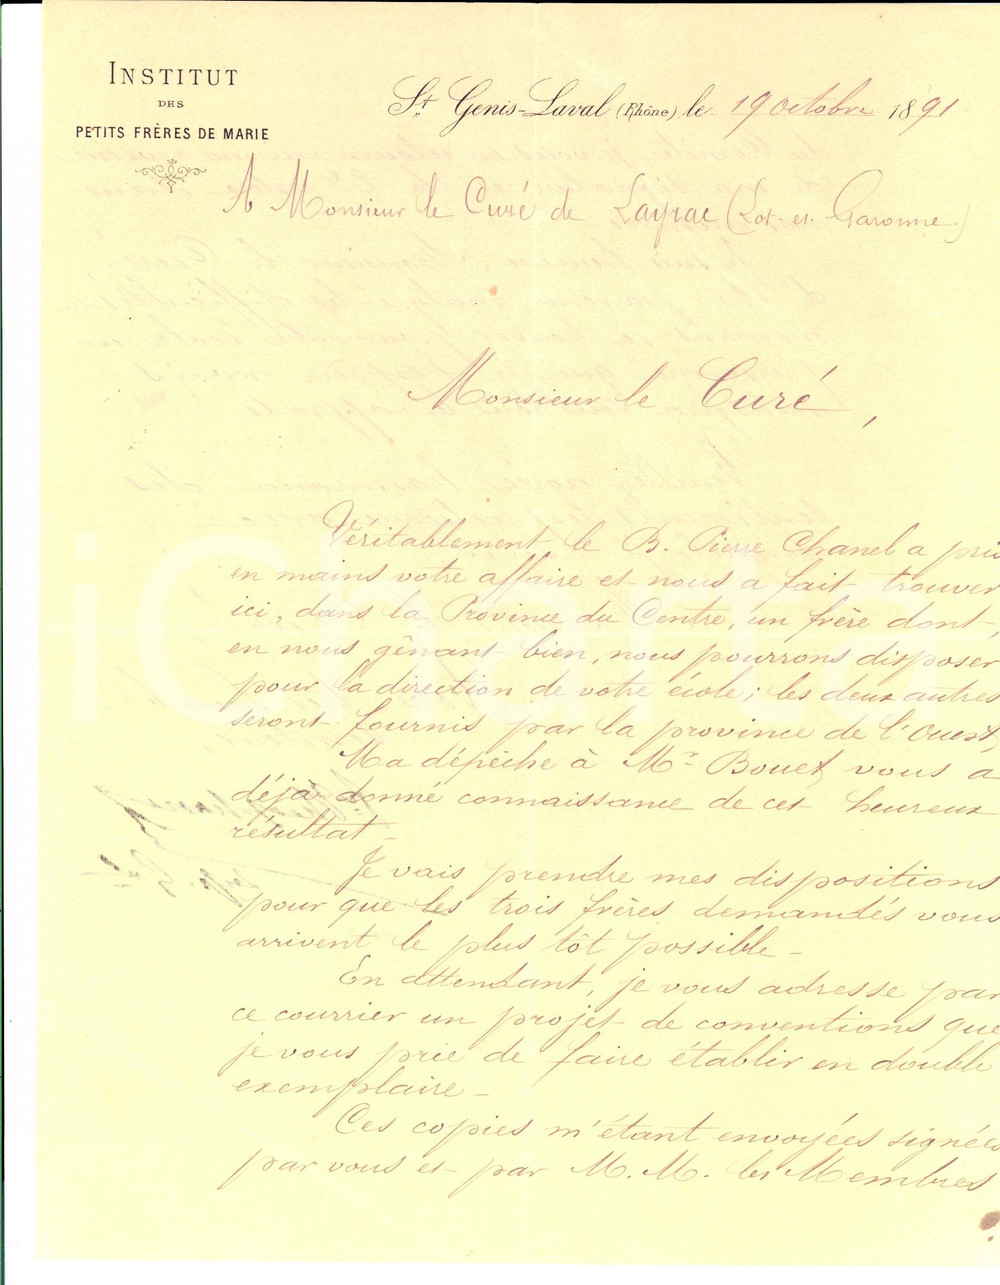 INSTITUT
DES
PETITS FRÈRES DE MARIE
St Genis-Laval (Rhône) le 19 octobre 1891
A Monsieur le Curé de Layrac (Lot-et-Garonne.)
Monsieur le Curé,
Véritablement le B. Pierre Chanel a pris
en mains votre affaire et nous a fait trouver
ici, dans la Province du Centre, un frère dont,
en nous gênant bien, nous pourrons disposer
pour la direction de votre école; les deux autres
seront fournis par la province de l'Ouest,
Ma dépêche à Mr Bouet, vous a
déjà donné connaissance de cet heureux
résultat-
Je vais prendre mes dispositions
pour que les trois frères demandés vous
arrivent le plus tôt possible-
En attendant, je vous adresse par
ce courrier un projet de conventions que
je vous prie de faire établir en double
exemplaire-
Ces copies m'étant envoyées signées
par vous et par M.M. les Membres
iCharta